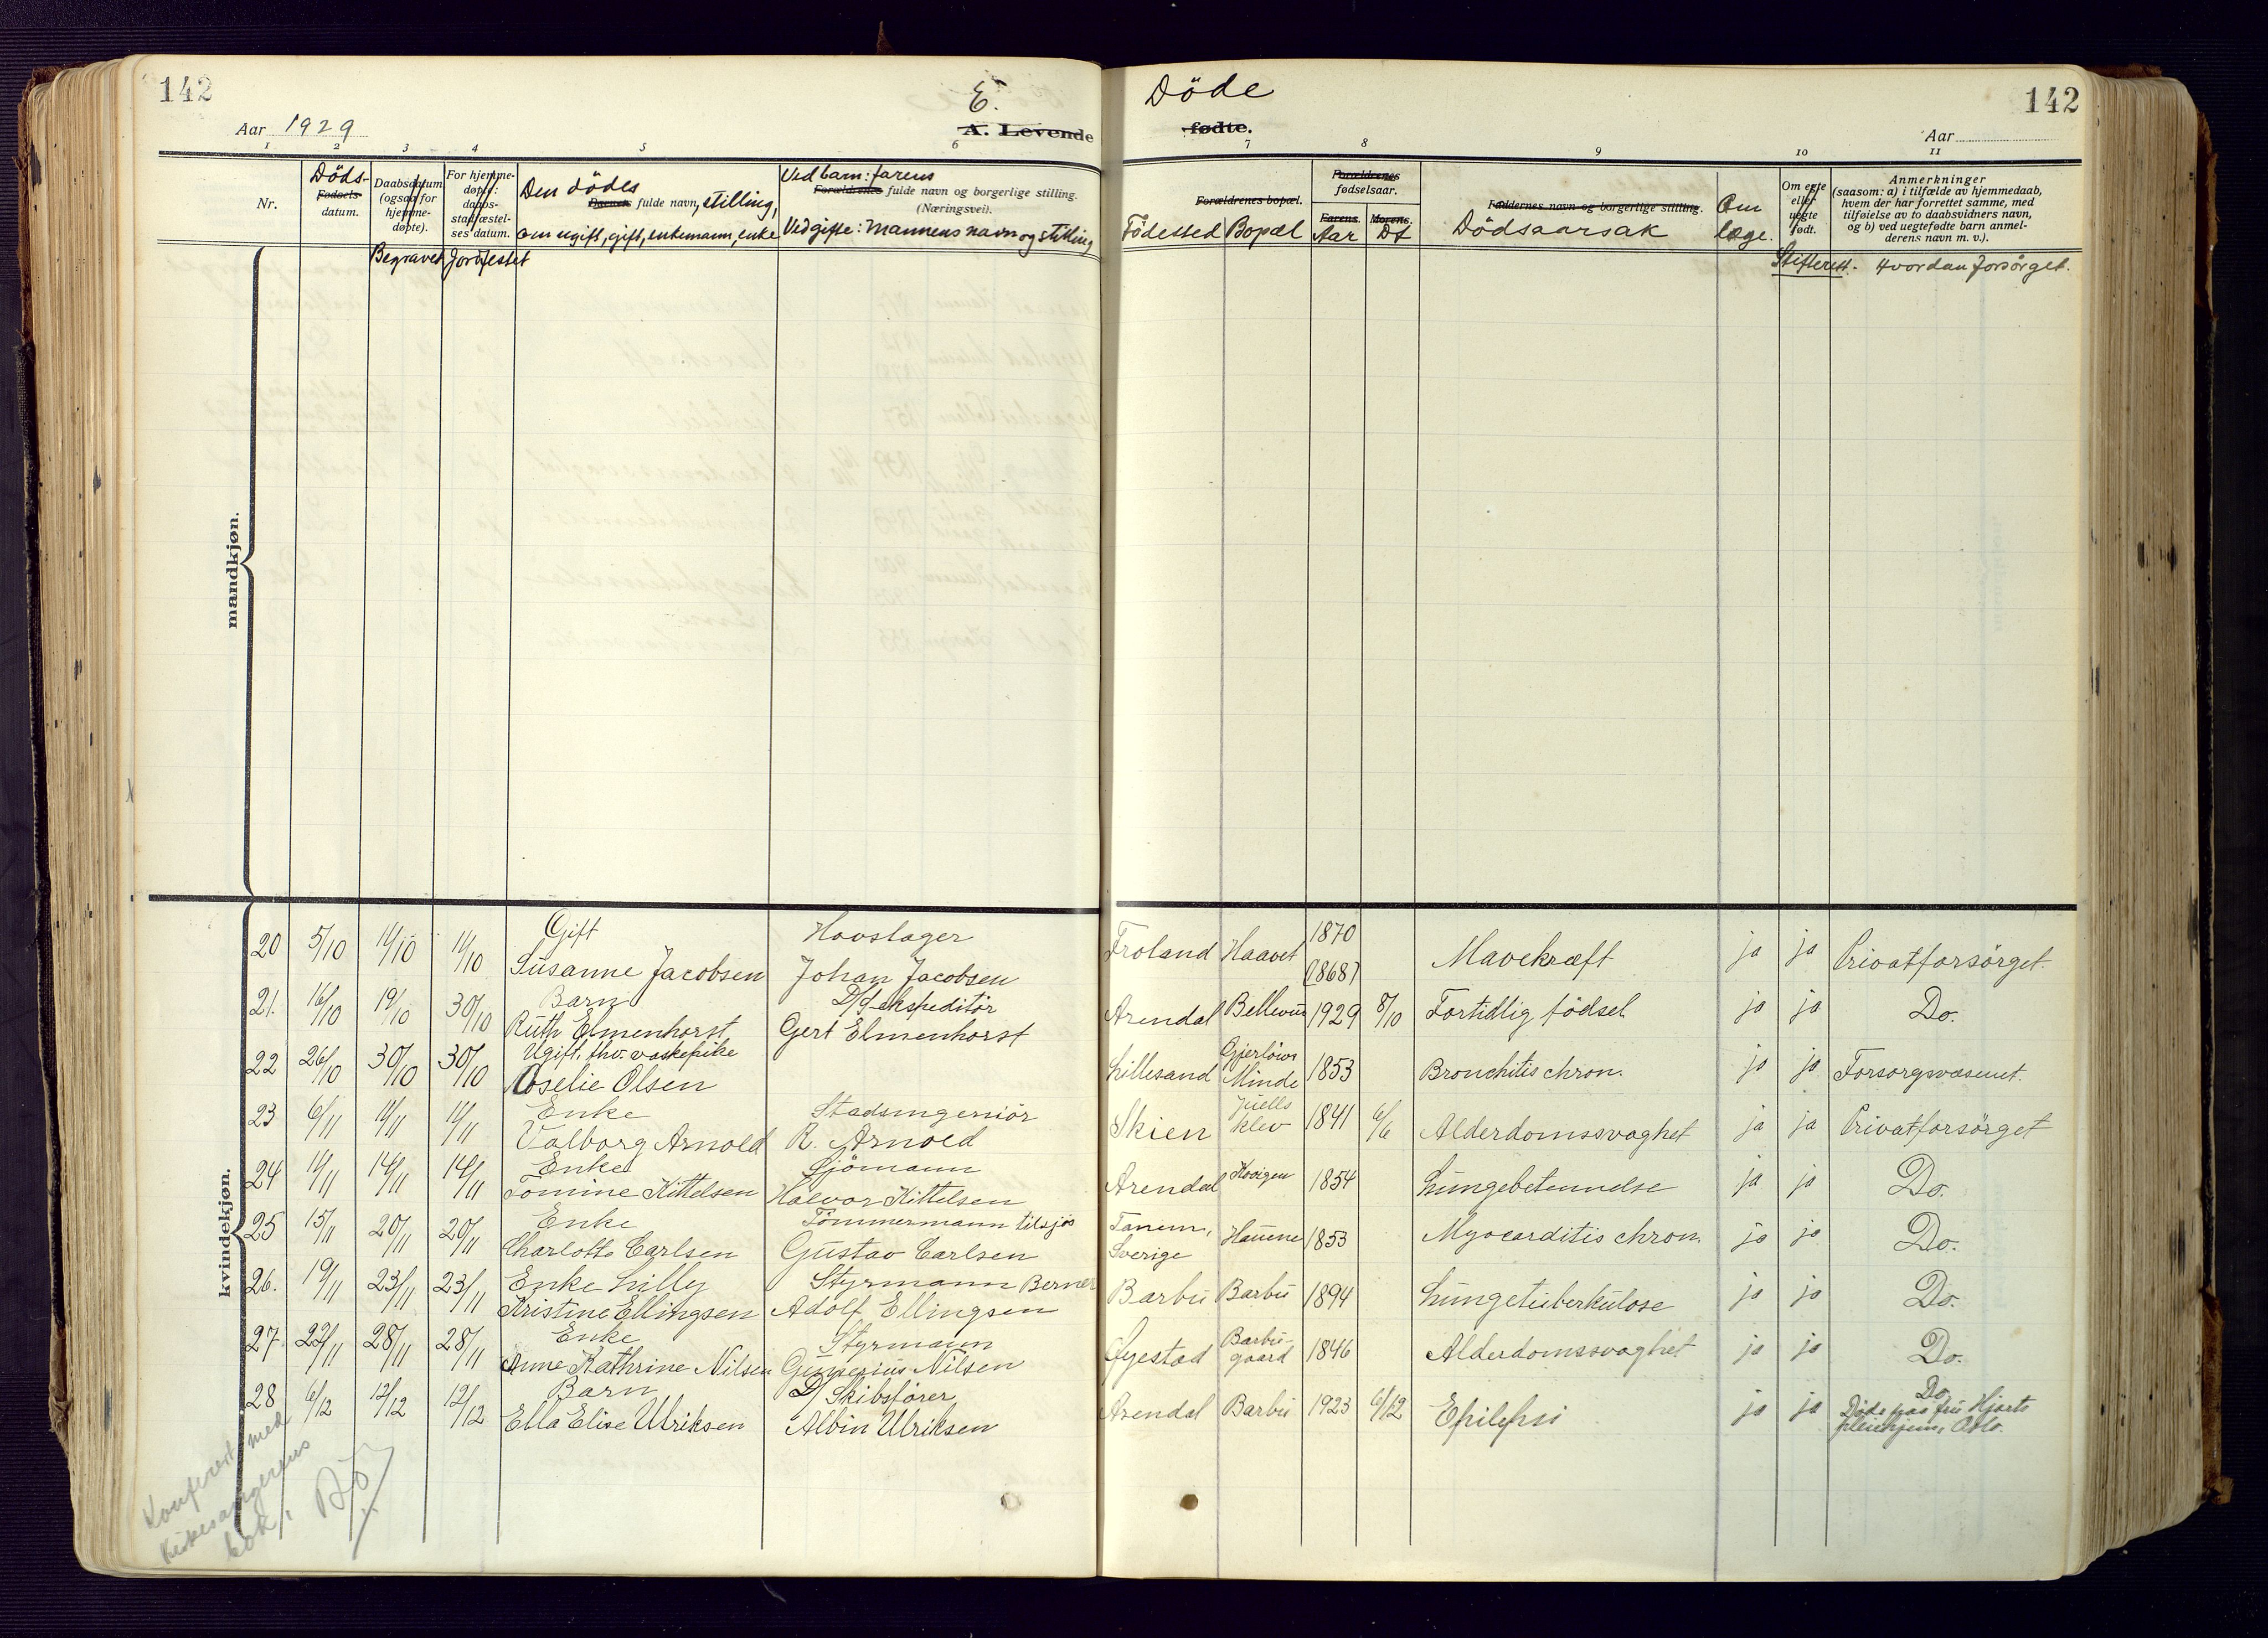 142
E.
Döde
142
Aar 1929
A. Levende
fødte.
Aar
1 2 3 4 5 6 7 8 9 10 11
Nr.
Döds-
Fødsels-
datum.
Daabsdatum
(ogsaa for
hjemme-
døpte).
Begravet
For hjemme-
døpte:
daabs-
stadfæstel-
ses datum.
Jordfestet
Den dödes
Barnets fulde navn, stilling,
om ugift, gift, enkemann, enke
Ved barn: farens
Forældrenes fulde navn og borgerlige stilling.
(Næringsvei).
Ved gifte: Mannens navn og stilling
Forældrenes bopæl.
Födested Bopæl
Forældrenes
fødselsaar.
Farens. Morens.
Aar Dt
Faddernes navn og borgerlige stilling.
Dödsaarsak
Om
læge.
Om egte
eller
uegte
født.
Skifterett.
Anmerkninger
(saasom: a) i tilfælde av hjemmedaab,
hvem der har forrettet samme, med
tilføielse av to daabsvidners navn,
og b) ved uegtefødte barn anmel-
derens navn m. v.).
Hvordan forsörget.
mandkjøn.
kvindekjøn.
20 5/10 11/10 11/10 Gift Hovslager 1870
Susanne Jacobsen Johan Jacobsen Froland Haavet (1868) Mavekræft ja ja Privatforsörget
21. 16/10 19/10 30/10 Barn D/S-ekspeditör
Ruth Elmenhorst Gert Elmenhorst Arendal Bellevue 1929 8/10 Fortidlig födsel ja ja Do.
22 26/10 30/10 30/10 Ugift, fhv. vaskepike Gjerlöws
Roselie Olsen Lillesand Minde 1853 Bronchitis chron. ja ja Forsorgsvæsenet.
23 6/11 11/11 11/11 Enke Stadsingeniör Juells
Valborg Arnold R. Arnold Skien klev 1841 6/6 Alderdomssvaghet ja ja Privatforsörget
24 11/11 14/11 14/11 Enke Sjömann
Tomine Kittelsen Halvor Kittelsen Arendal Kovigen 1854 Lungebetennelse ja ja Do.
25 15/11 20/11 20/11 Enke Tömmermann tilsjös Tanem,
Charlotte Carlsen Gustav Carlsen Sverige Hauene 1853 Myocarditis chron. ja ja Do.
26. 19/11 23/11 23/11 Enke Lilly Styrmann Berner
Kristine Ellingsen Adolf Ellingsen Barbu Barbu 1894 Lungetuberkulose ja ja Do.
27 22/11 28/11 28/11 Enke Styrmann Barbu-
Anne Kathrine Nilsen Gunerius Nilsen Øyestad gaard 1846 Alderdomssvaghet ja ja Do.
28 6/12 12/12 12/12 Barn D/ Skibsförer Do.
Ella Elise Ulriksen Albin Ulriksen Arendal Barbu 1923 6/12 Epilepsi ja ja Döde paa fru Hjorts
pleiehjem, Oslo.
Konferert med
kirkesangerens
bok.